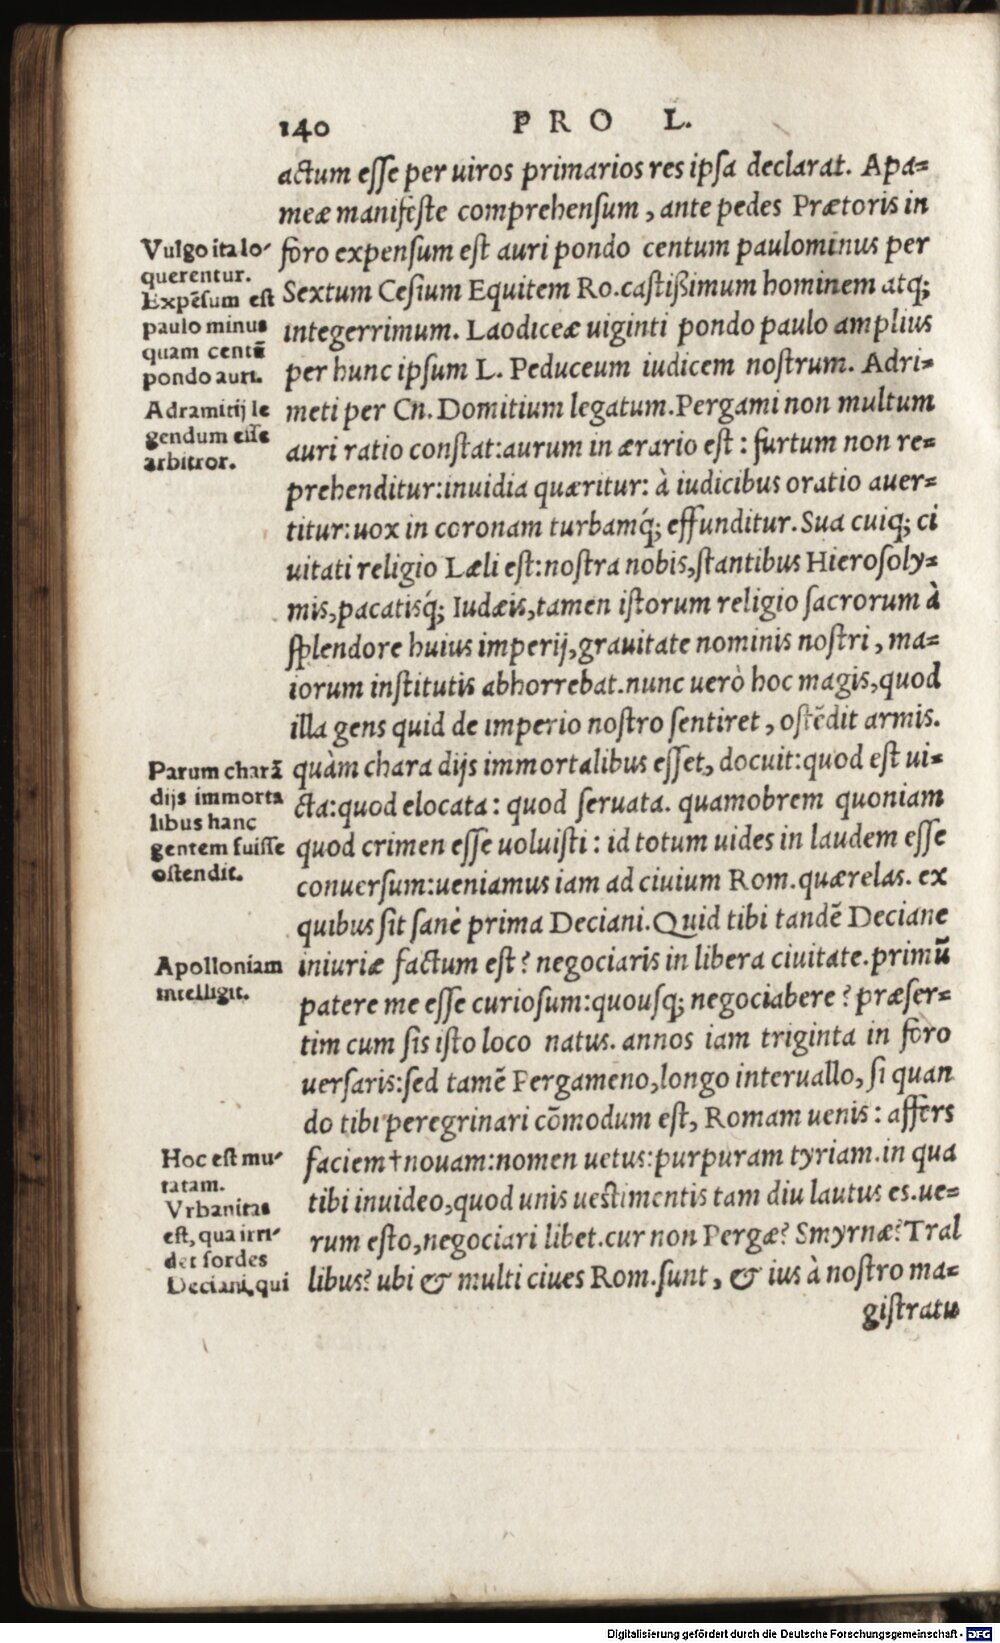 140 PRO L.
actum esse per uiros primarios res ipsa declarat. Apa=
meæ manifeste comprehensum, ante pedes Prætoris in
foro expensum est auri pondo centum paulominus per
Sextum Cesium Equitem Ro.castißimum hominem atq;
integerrimum. Laodiceæ uiginti pondo paulo amplius
per hunc ipsum L. Peduceum iudicem nostrum. Adri=
meti per Cn. Domitium legatum.Pergami non multum
auri ratio constat:aurum in ærario est: furtum non re=
prehenditur:inuidia quæritur: à iudicibus oratio auer=
titur:uox in coronam turbamq́; effunditur.Sua cuiq; ci
uitati religio Læli est:nostra nobis,stantibus Hierosoly=
mis,pacatisq́; Iudæis,tamen istorum religio sacrorum à
splendore huius imperij,grauitate nominis nostri, ma=
iorum institutis abhorrebat.nunc uerò hoc magis,quod
illa gens quid de imperio nostro sentiret, ostēdit armis.
quàm chara dijs immortalibus esset, docuit:quod est ui=
cta:quod elocata: quod seruata. quamobrem quoniam
quod crimen esse uoluisti: id totum uides in laudem esse
conuersum:ueniamus iam ad ciuium Rom.quærelas. ex
quibus sit sanè prima Deciani.Quid tibi tandē Deciane
iniuriæ factum est? negociaris in libera ciuitate.primū
patere me esse curiosum:quousq; negociabere? præser=
tim cum sis isto loco natus. annos iam triginta in foro
uersaris:sed tamē Pergameno,longo interuallo, si quan
do tibi peregrinari cōmodum est, Romam uenis: affers
faciem†nouam:nomen uetus:purpuram tyriam.in qua
tibi inuideo,quod unis uestimentis tam diu lautus es.ue=
rum esto,negociari libet.cur non Pergæ? Smyrnæ? Tral
libus? ubi & multi ciues Rom.sunt, & ius à nostro ma=
gistratu
Vulgo ita lo-
querentur.
Expēsum est
paulo minus
quam centū
pondo auri.
Adramitij le
gendum esse
arbitror.
Parum charā
dijs immorta
libus hanc
gentem fuisse
ostendit.
Apolloniam
intelligit.
Hoc est mu-
tatam.
Vrbanitas
est, qua irri-
det sordes
Deciani, qui
Digitalisierung gefördert durch die Deutsche Forschungsgemeinschaft - DFG